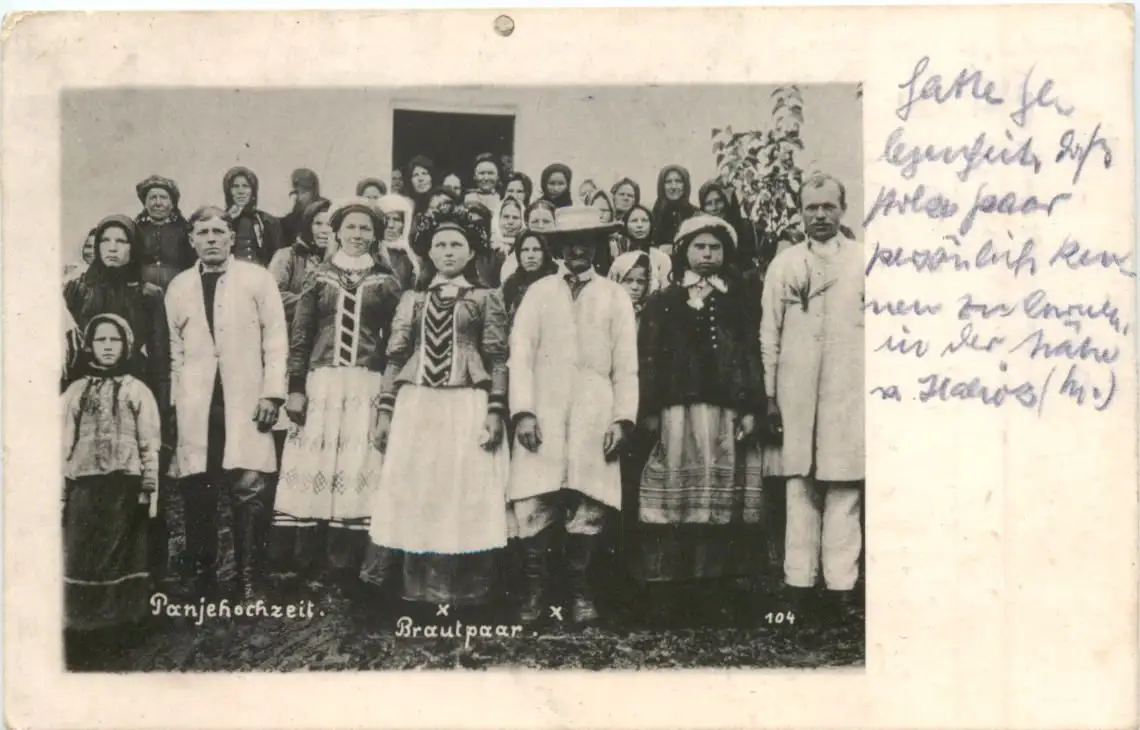 Hatte Ge
legenheit, dies
Paar
persönlich ken-
nen zu lernen,
in der Nähe
v.
Panjehochzeit.
x x
Brautpaar.
104